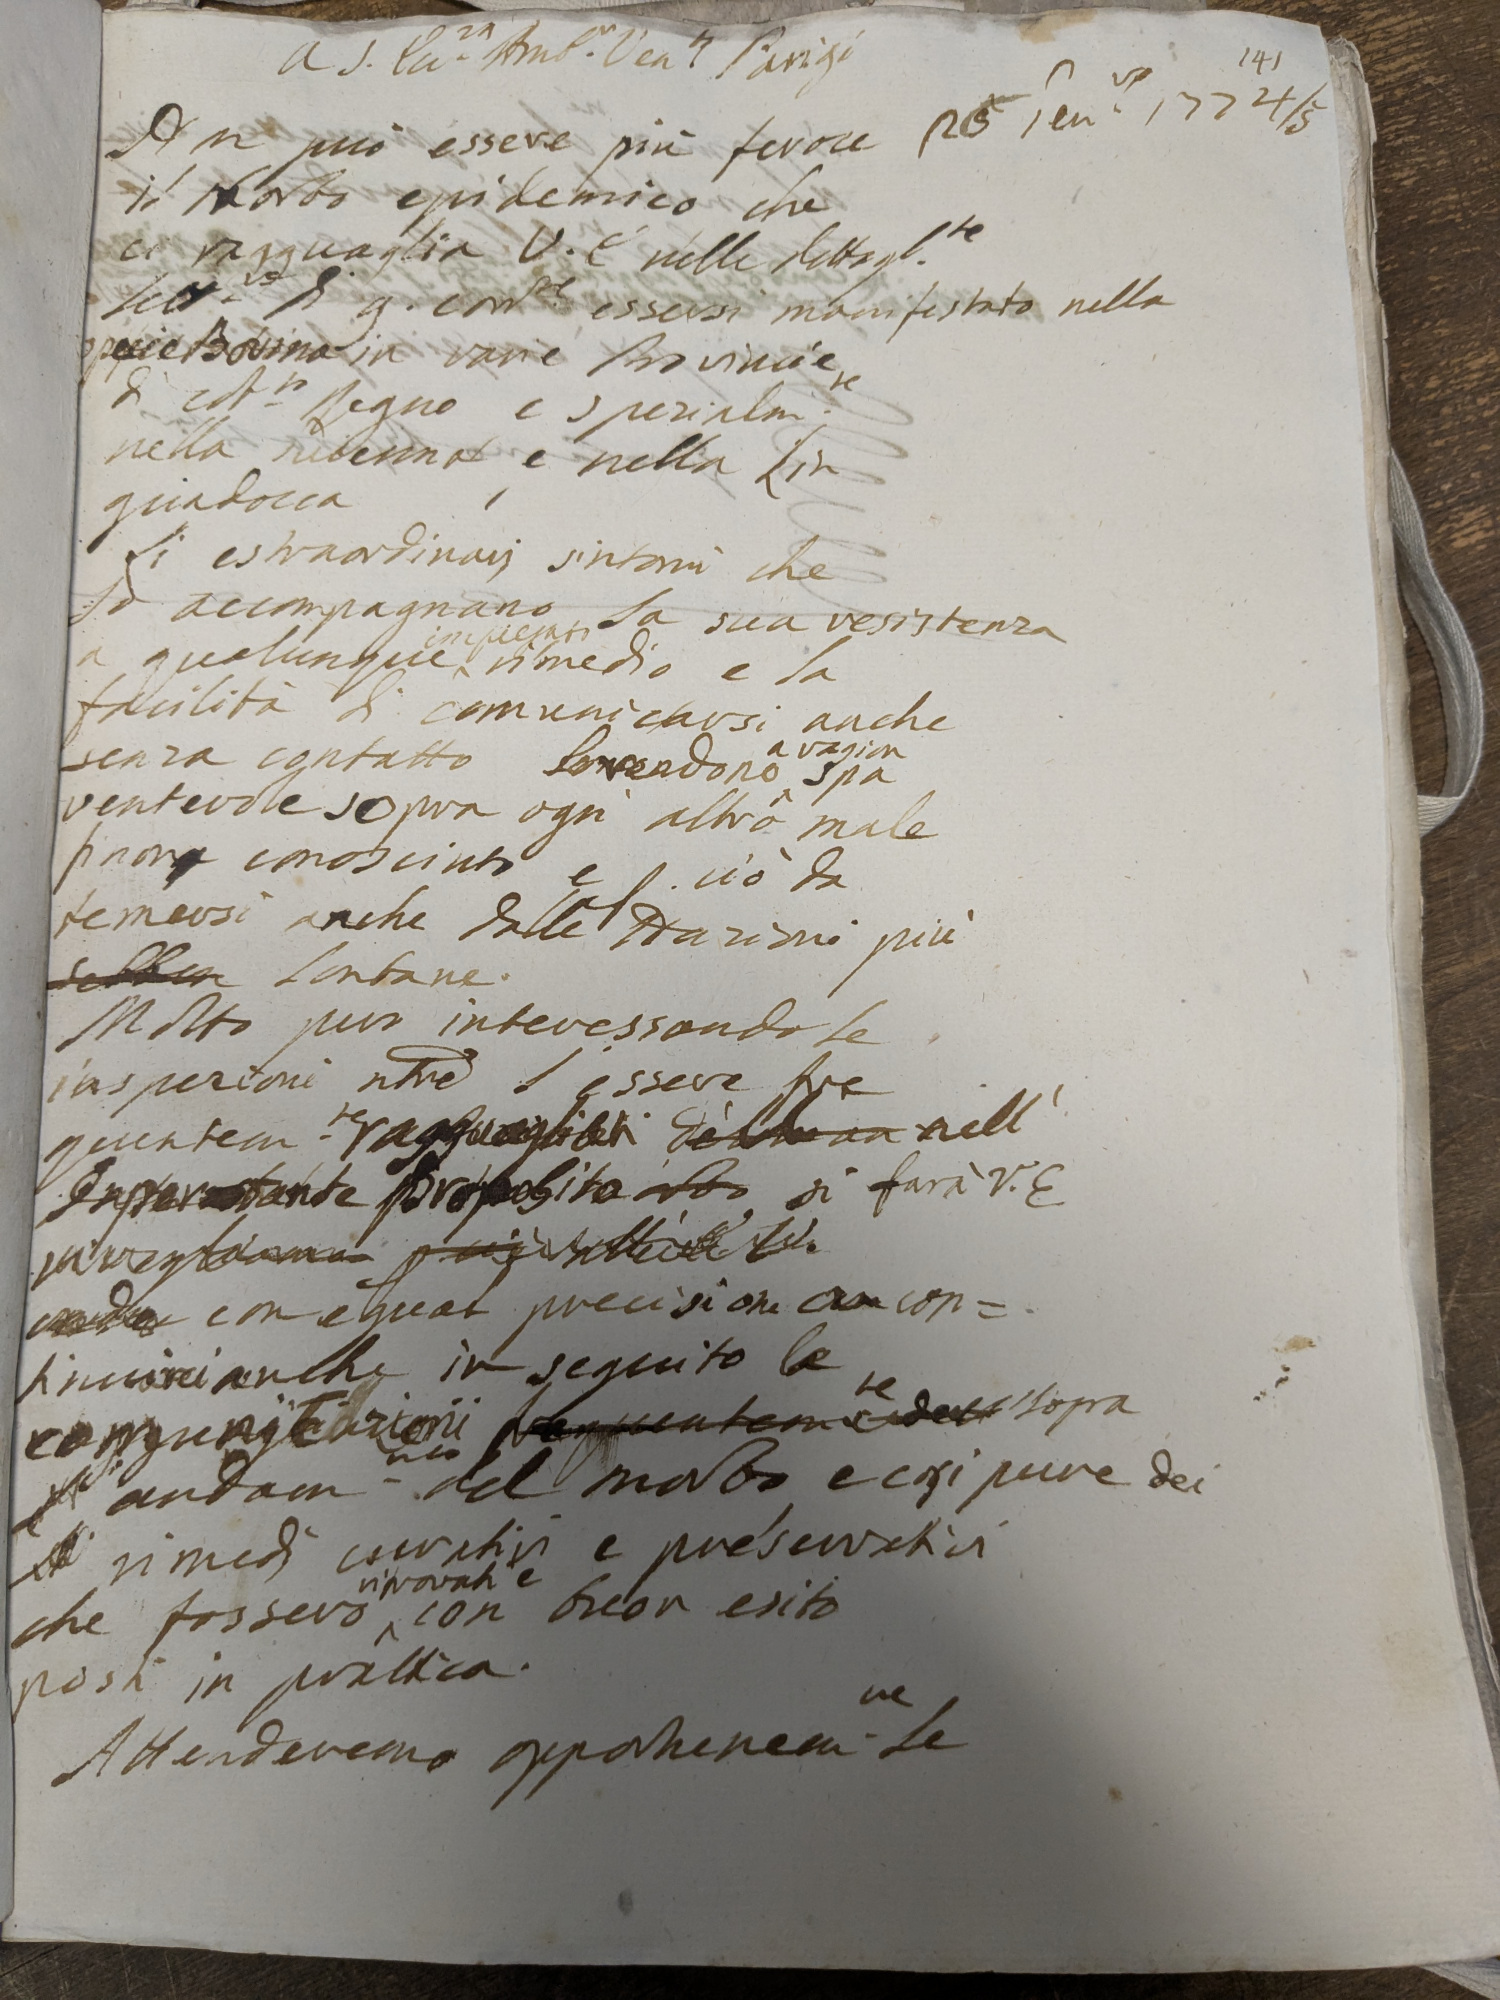 A S. Ecc.za Amb.r Ven.to Parigi
141
25 Genn.ro 1774/5
Non può essere più feroce
il Morbo epidemico che
ci ragguaglia V. E. nelle dettagl.te
di 9. corr.te essersi manifestato nella
specie Bovina in varie Provincie
di cot.o Regno e spezialm.te
nella e nella Lin
guadocca
Li estraordinarj sintomi che
lo accompagnano, la sua resistenza
a qualunque rimedio e la
facilità di comunicarsi anche
senza contatto lo rendono a ragion spa
ventevole sopra ogni altro male
finora conosciuto e p. ciò da
temersi anche dalle Nazioni più
lontane.
Molto pur interessando le
inspezioni ntre l'essere fre
quentem.te ragguagliati nell'
Importante proposito si farà V. E.
con egual precisione con=
tinuarci anche in seguito le
sopra
l'andam.nto del morbo e così pure dei
rimedj curativi e preservativi
che fossero ritrovati e con buon esito
posti in prattica.
Attenderemo opportunem.te le